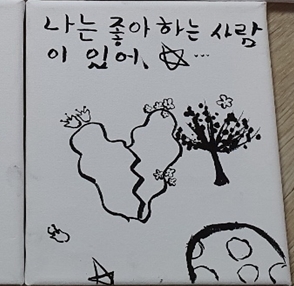 나는 좋아하는 사람
이 있어, ...